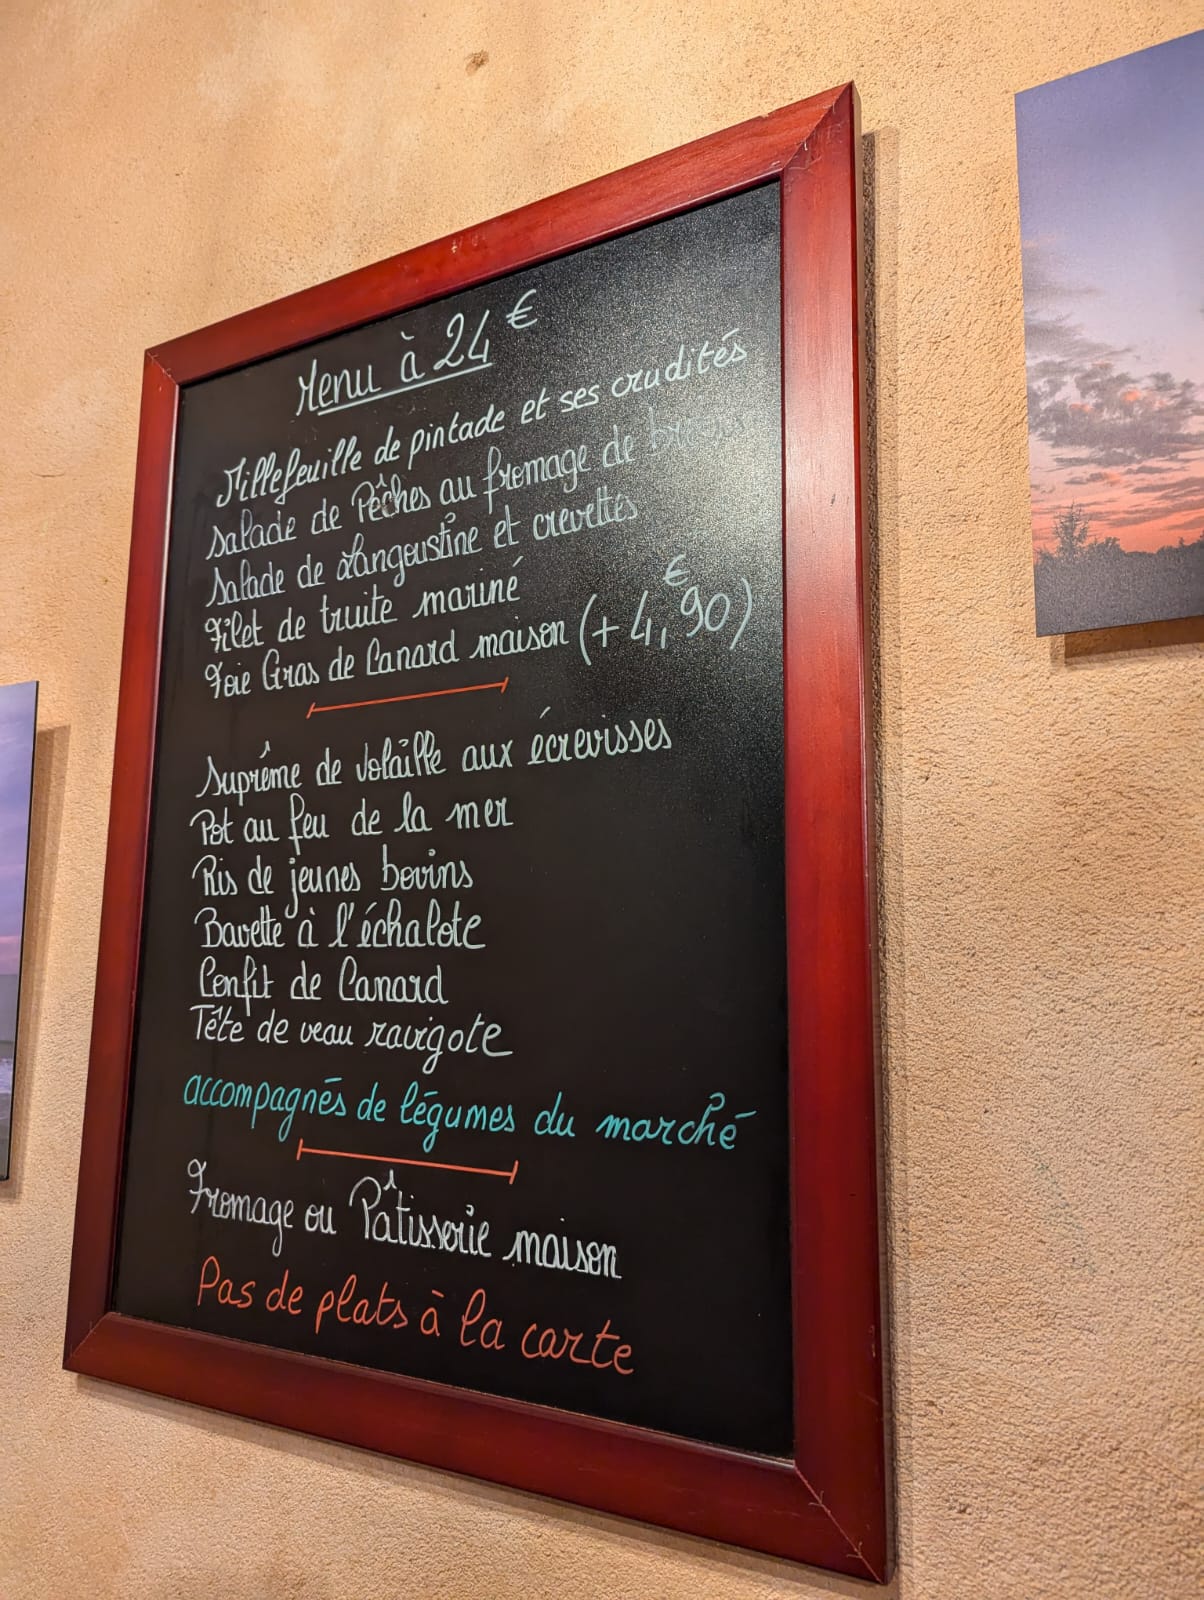 Menu à 24 €
Millefeuille de pintade et ses crudités
Salade de Pêches au fromage de brebis
Salade de Langoustine et crevettes
Filet de truite mariné
Foie Gras de Canard maison (+ 4,€90)
Suprême de volaille aux écrevisses
Pot au feu de la mer
Ris de jeunes bovins
Bavette à l'échalote
Confit de Canard
Tête de veau ravigote
accompagnés de légumes du marché
Fromage ou Pâtisserie maison
Pas de plats à la carte